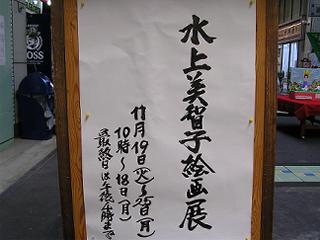 水上美智子絵画展
11月19日(火)〜25日(月)
10時〜18日(月)
最終日は午後4時まで
BOSS